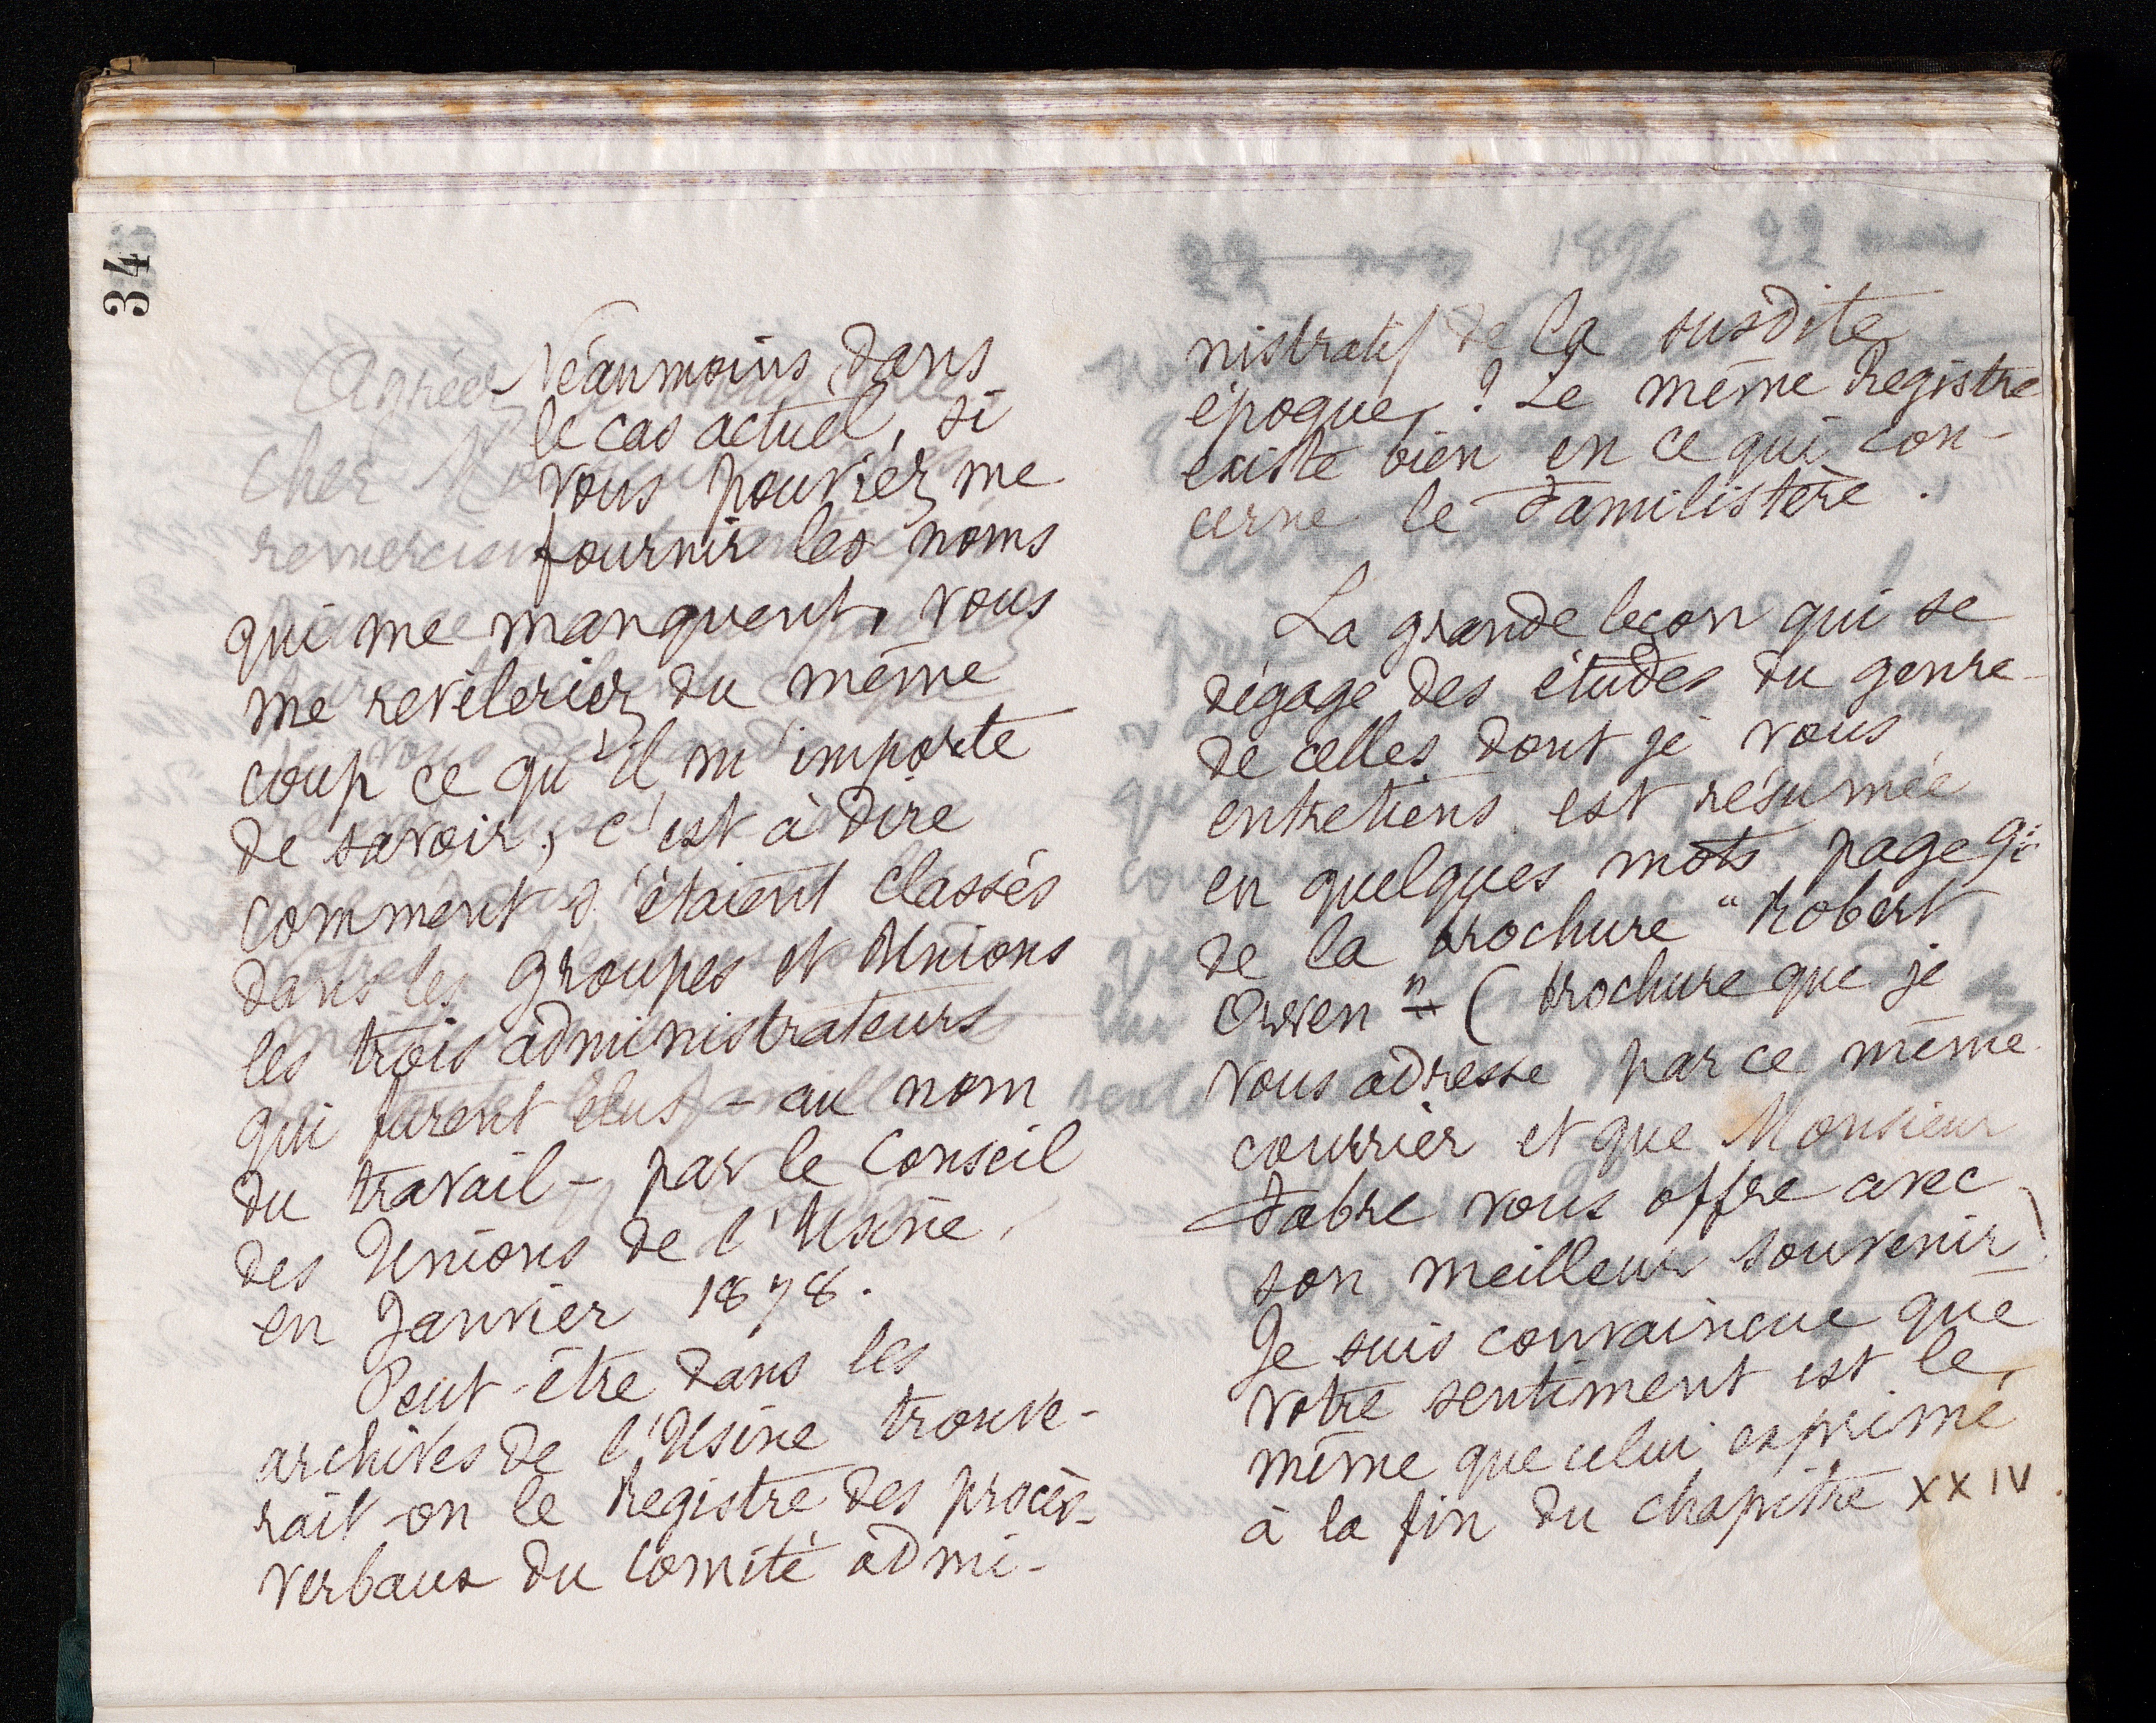 34
Néanmoins dans
le cas actuel, si
vous pouviez me
fournir les noms
qui me manquent, vous
me revèleriez du même
coup ce qu'il m'importe
de savoir, c'est à dire
comment s'étaient classés
dans les groupes et Unions
les trois administrateurs
qui furent élus - au nom
du travail - par le Conseil
des Unions de l'Usine,
en Janvier 1878.
Peut-être dans les
archives de l'Usine trouve-
rait-on le Registre des procès-
verbaux du comité admi-
nistratif de la susdite
époque ? Le même Registre
existe bien en ce qui con-
cerne le Familistère.
La grande leçon qui se
dégage des études du genre
de celles dont je vous
entretiens est résumée
en quelques mots page
de la brochure "Robert
Owen" (brochure que je
vous adresse par ce même
courrier et que Monsieur
Fabre vous offre avec
son meilleur souvenir)
Je suis convaincue que
votre sentiment est le
même que celui exprimé
à la fin du chapitre XXIV.